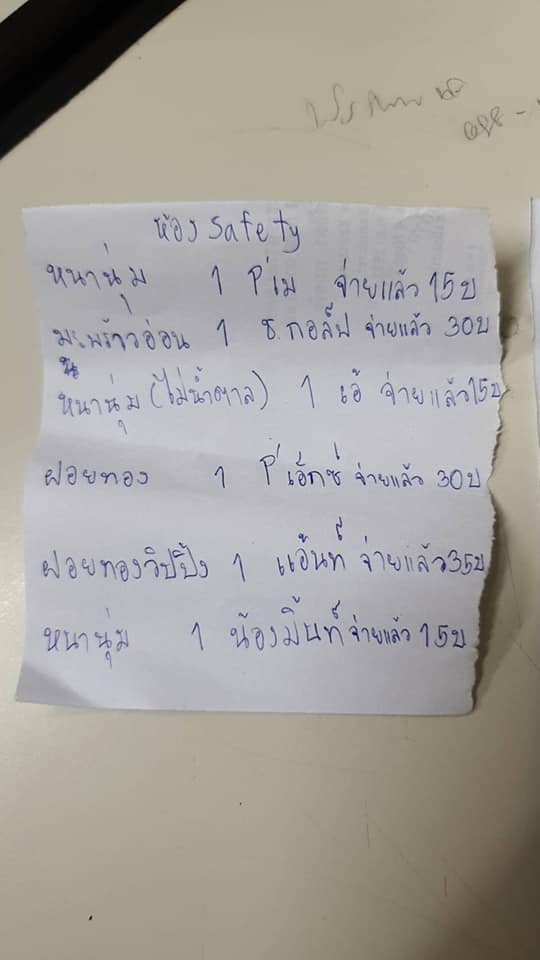 ห้อง Safety
หนานุ่ม 1 P'เม จ่ายแล้ว 15บ
มะพร้าวอ่อน 1 ธ.กอล์ฟ จ่ายแล้ว 30บ
หนานุ่ม (ไม่น้ำตาล) 1 เอ้ จ่ายแล้ว 15บ
ฝอยทอง 1 P'เอ็กซ์ จ่ายแล้ว 30บ
ฝอยทองวิปปิ้ง 1 แอ้นท์ จ่ายแล้ว 35บ
หนานุ่ม 1 น้องมิ้นท์ จ่ายแล้ว 15บ